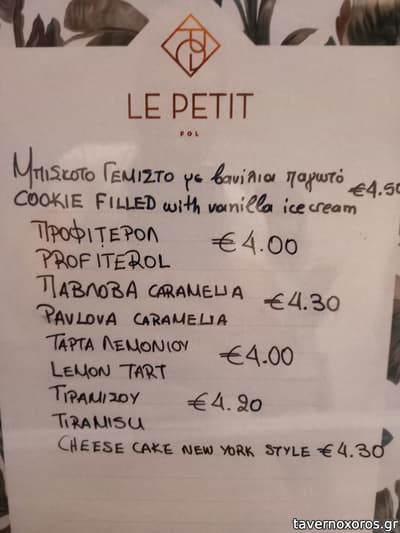 LE PETIT
FOL
ΜΠΙΣΚΟΤΟ ΓΕΜΙΣΤΟ με βανίλια παγωτό €4.50
COOKIE FILLED with vanilla ice cream
ΠΡΟΦΙΤΕΡΟΛ €4.00
PROFITEROL
ΠΑΒΛΟΒΑ CARAMELIA €4.30
PAVLOVA CARAMELIA
ΤΑΡΤΑ ΛΕΜΟΝΙΟΥ €4.00
LEMON TART
ΤΙΡΑΜΙΣΟΥ €4.20
TIRAMISU
CHEESE CAKE NEW YORK STYLE €4.30
tavernoxoros.gr